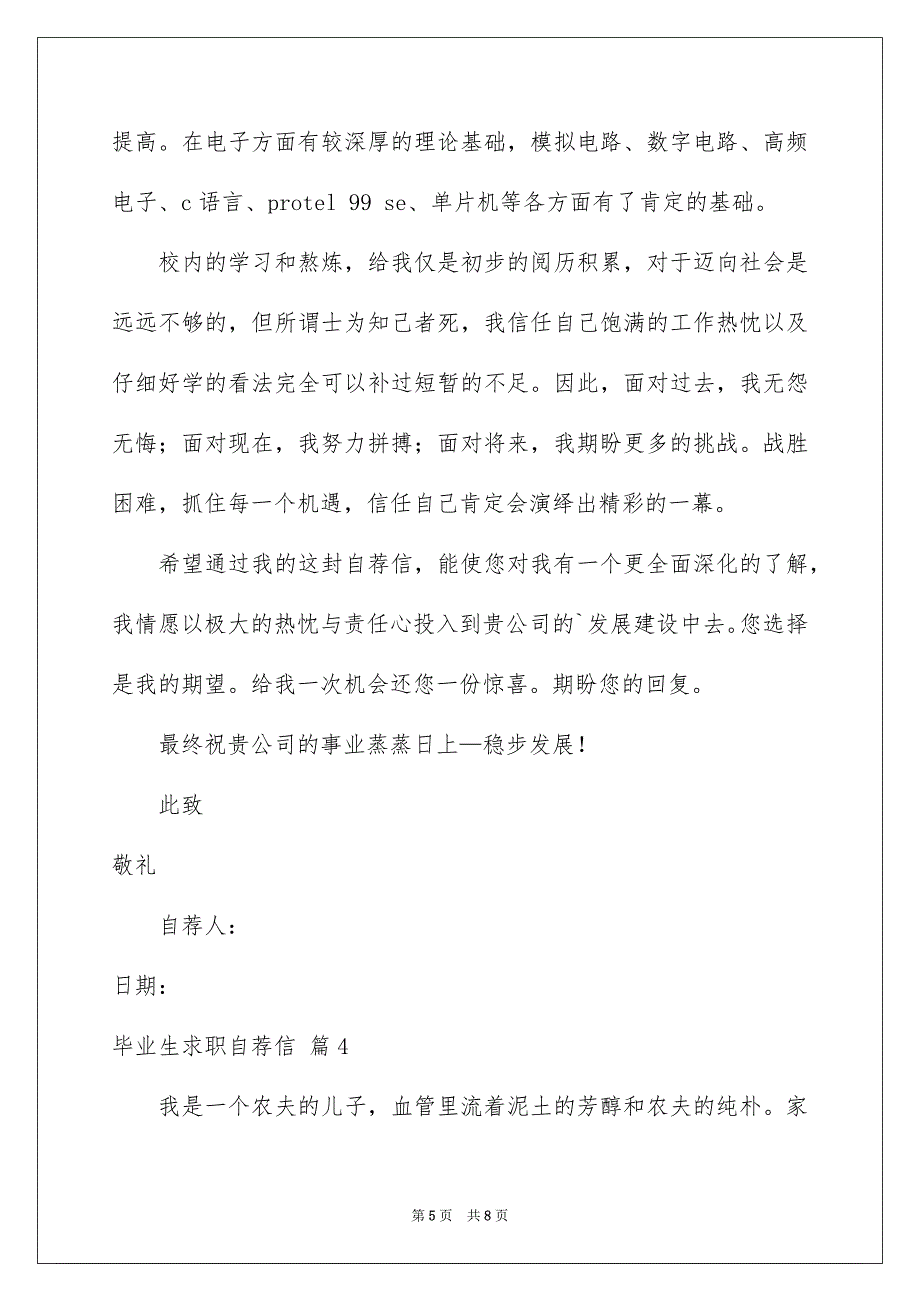 提高。在电子方面有较深厚的理论基础，模拟电路、数字电路、高频
电子、c 语言、protel 99 se、单片机等各方面有了肯定的基础。
校内的学习和熬炼，给我仅是初步的阅历积累，对于迈向社会是
远远不够的，但所谓士为知己者死，我信任自己饱满的工作热忱以及
仔细好学的看法完全可以补过短暂的不足。因此，面对过去，我无怨
无悔；面对现在，我努力拼搏；面对将来，我期盼更多的挑战。战胜
困难，抓住每一个机遇，信任自己肯定会演绎出精彩的一幕。
希望通过我的这封自荐信，能使您对我有一个更全面深化的了解，
我情愿以极大的热忱与责任心投入到贵公司的`发展建设中去。您选择
是我的期望。给我一次机会还您一份惊喜。期盼您的回复。
最终祝贵公司的事业蒸蒸日上—稳步发展！
此致
敬礼
自荐人：
日期：
毕业生求职自荐信 篇4
我是一个农夫的儿子，血管里流着泥土的芳醇和农夫的纯朴。家
第 5 页 共 8 页